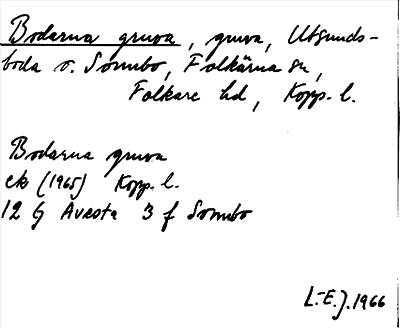 Bodarna gruva, gruva, Utsunds-
boda o. Sonnbo, Folkärna sn,
Folkare hd, Kopp. l.
Bodarna gruva
ek (1965) Kopp. l.
12 G Avesta 3 f Sonnbo
L.-E.J. 1966